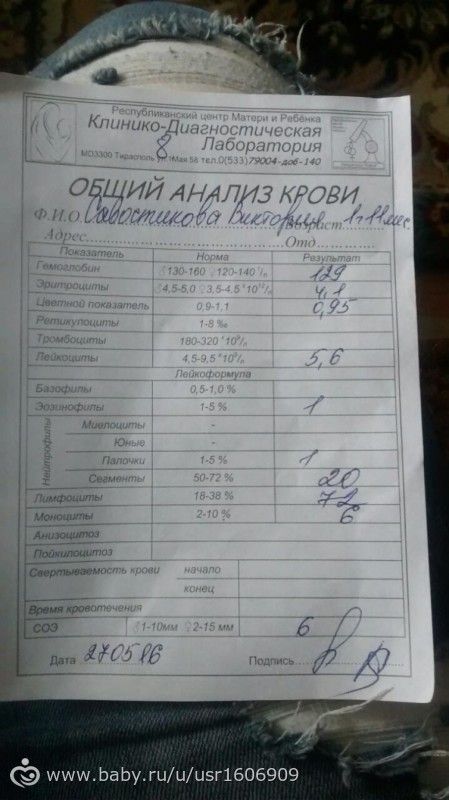 Республиканский центр Матери и Ребёнка
Клинико-Диагностическая
8 Лаборатория
MD3300 Тирасполь ул. 1 Мая 58 тел.0(533)79004-доб-140
ОБЩИЙ АНАЛИЗ КРОВИ
Ф.И.О. Савостикова Виктория Возраст 1г 11 мес
Адрес Отд
Показатель Норма Результат
Гемоглобин ♂130-160 ♀120-140 г/л 129
Эритроциты ♂4,5-5,0 ♀3,5-4,5*10¹²/л 4,1
Цветной показатель 0,9-1,1 0,95
Ретикулоциты 1-8 ‰
Тромбоциты 180-320 *10⁹/л
Лейкоциты 4,5-9,5 *10⁹/л 5,6
Лейкоформула
Базофилы 0,5-1,0 %
Эозинофилы 1-5 % 1
Нейтрофилы
Миелоциты -
Юные -
Палочки 1-5 % 1
Сегменты 50-72 % 20
Лимфоциты 18-38 % 72
Моноциты 2-10 % 6
Анизоцитоз
Пойкилоцитоз
Свертываемость крови начало
конец
Время кровотечения
СОЭ ♂1-10мм ♀2-15 мм 6
Дата 270516 Подпись
www.baby.ru/u/usr1606909